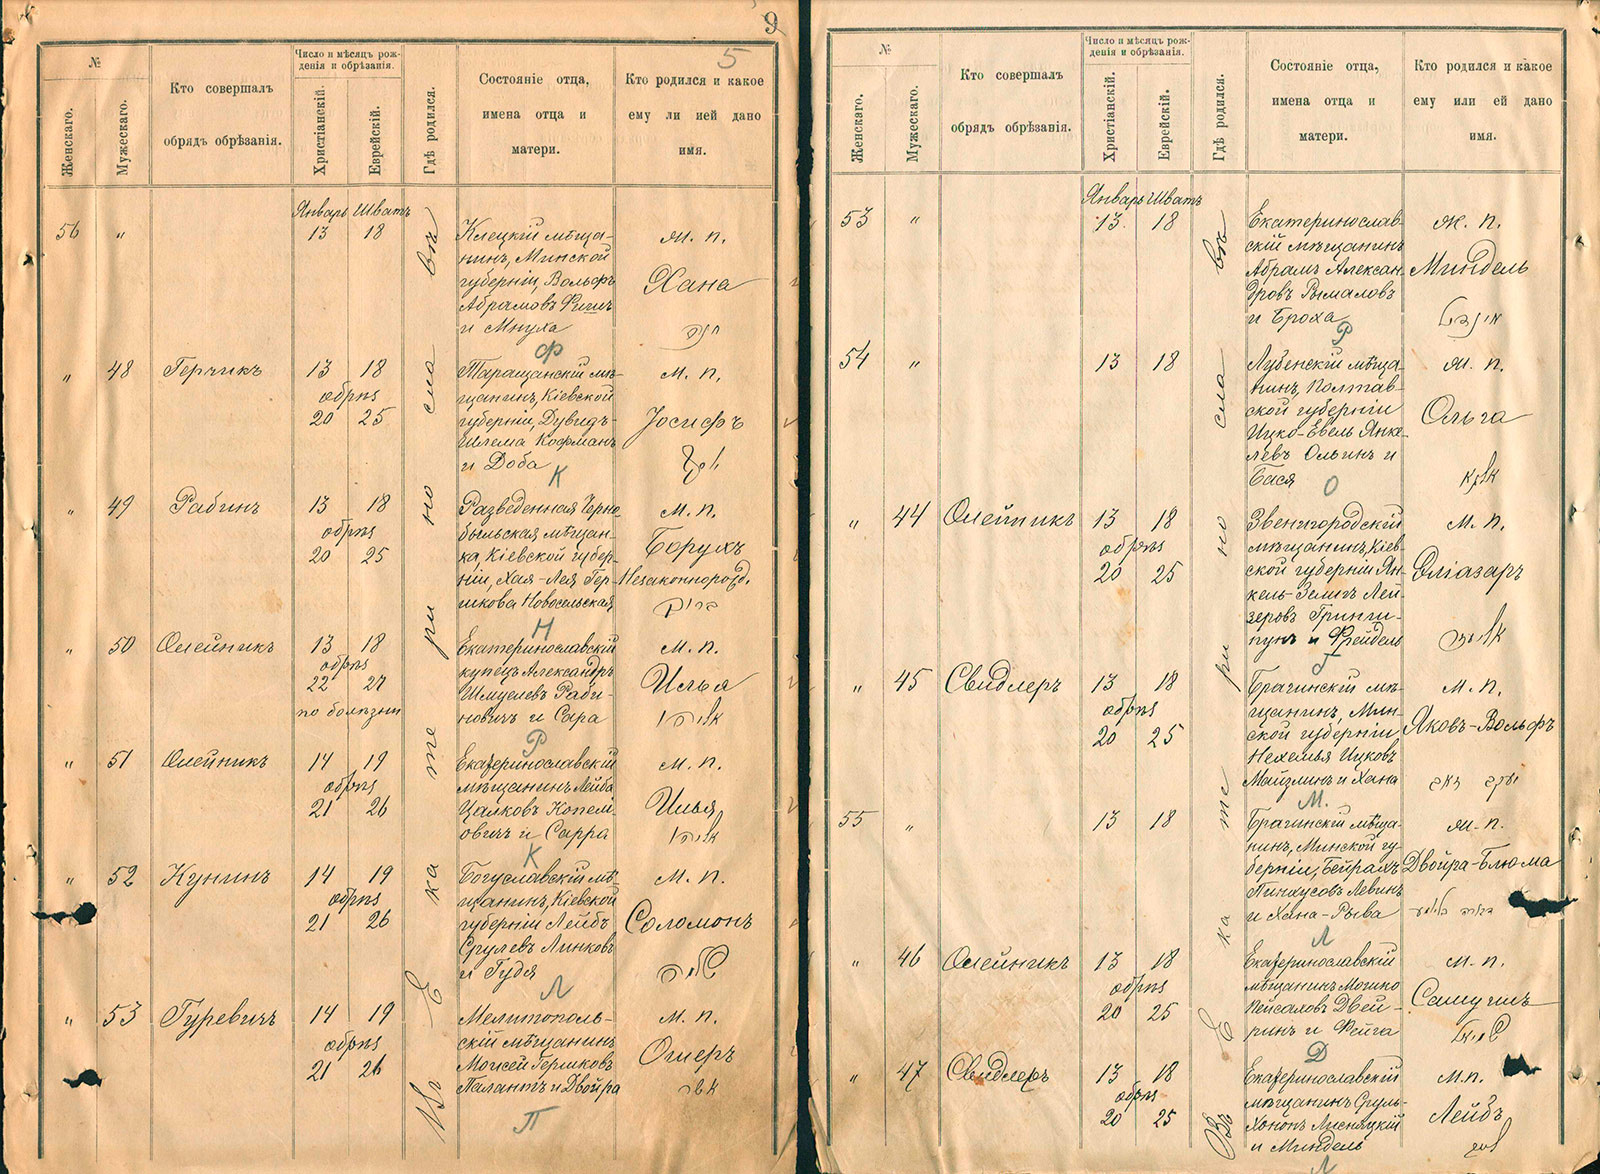 9
5
№
Женскаго.
Мужескаго.
Кто совершалъ
обрядъ обрѣзанія.
Число и мѣсяцъ рож-
денія и обрѣзанія.
Христіанскій.
Еврейскій.
Гдѣ родился.
Состояніе отца,
имена отца и
матери.
Кто родился и какое
ему ли ией дано
имя.
Январь Шватъ
Въ Екатеринославѣ
56 „ 13 18
Клецкій мѣща-
нинъ, Минской
губерніи, Вольфъ
Абрамовъ
и Мнуха
Ф
ж. п.
Хана
חנה
„ 48 Герчикъ 13 18
обрѣз
20 25
Таращанскій мѣ-
щанинъ, Кіевской
губерніи, Дувидъ-
Шлема Кофманъ
и Доба
К
м. п.
Іосифъ
יוסף
„ 49 Рабинъ 13 18
обрѣз
20 25
Разведенная Черно-
быльская мѣщан-
ка, Кіевской губер-
ніи, Хая-Лея Гер-
шкова Новосельская
Н
м. п.
Борухъ
Незаконнорожд.
ברוך
„ 50 Олейникъ 13 18
обрѣз
22 27
по болѣзни
Екатеринославскій
купецъ Александръ
Шмуелевъ Раби-
новичъ и Сара
Р
м. п.
Илья
אליהו
„ 51 Олейникъ 14 19
обрѣз
21 26
Екатеринославскій
мѣщанинъ Лейба
Цалковъ Копели-
овичъ и Сарра
К
м. п.
Илья
אליהו
„ 52 Кунинъ 14 19
обрѣз
21 26
Богуславскій мѣ-
щанинъ, Кіевской
губерніи Лейбъ
Срулевъ Линковъ
и Гудя
Л
м. п.
Соломонъ
שלמה
„ 53 Гуревичъ 14 19
обрѣз
21 26
Мелитополь-
скій мѣщанинъ
Мойсей Гершковъ
Палантъ и Двойра
П
м. п.
Ошеръ
אשר
№
Женскаго.
Мужескаго.
Кто совершалъ
обрядъ обрѣзанія.
Число и мѣсяцъ рож-
денія и обрѣзанія.
Христіанскій.
Еврейскій.
Гдѣ родился.
Состояніе отца,
имена отца и
матери.
Кто родился и какое
ему или ей дано
имя.
Январь Шватъ
Въ Екатеринославѣ
53 „ 13 18
Екатеринослав-
скій мѣщанинъ
Абрамъ Алексан-
дровъ Рымаловъ
и Броха
Р
ж. п.
Миндель
מינדל
54 „ 13 18
Лубенскій мѣща-
нинъ, Полтав-
ской губерніи
Ицко-Евель Янке-
левъ Ольгинъ и
Бася
О
ж. п.
Ольга
„ 44 Олейникъ 13 18
обрѣз
20 25
Звенигородскій
мѣщанинъ, Кіев-
ской губерніи Ян-
кель-Зелигъ Лей-
зеровъ Гринги-
пунъ и Фрейдель
Г
м. п.
Еліазаръ
אליעזר
„ 45 Свидлеръ 13 18
обрѣз
20 25
Брагинскій мѣ-
щанинъ, Мин-
ской губерніи
Нехемья Ицковъ
Майзлинъ и Хана
М.
м. п.
Яковъ-Вольфъ
יעקב זאב
55 „ 13 18
Брагинскій мѣща-
нинъ, Минской гу-
берніи, Бейрахъ
Пинхусовъ Левинъ
и Хана-Рыва
Л
ж. п.
Двойра-Блюма
דבורה בלומא
„ 46 Олейникъ 13 18
обрѣз
20 25
Екатеринославскій
мѣщанинъ Мошко
Пейсаховъ Двей-
ринъ и Фейга
Д
м. п.
Самуилъ
שמואל
„ 47 Свидлеръ 13 18
обрѣз
20 25
Екатеринославскій
мѣщанинъ Сруль-
Хононъ Лисняцкій
и Миндель
Л
м. п.
Лейбъ